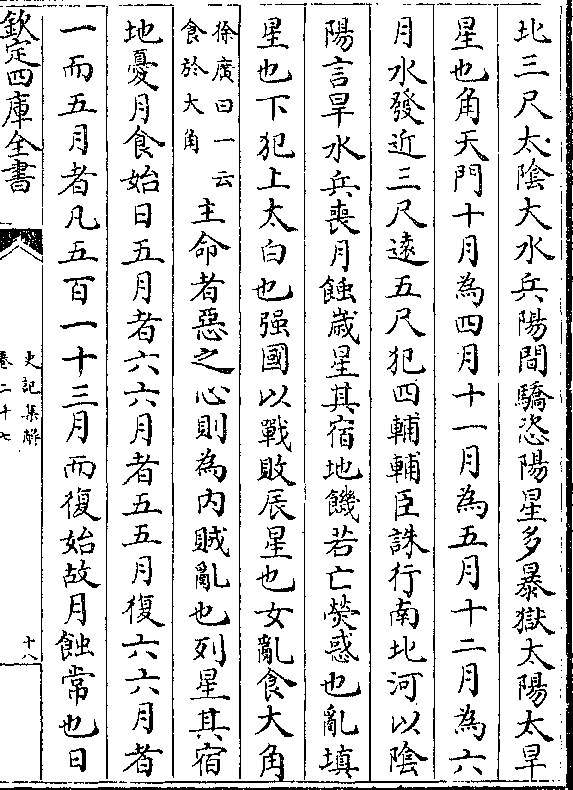 北三尺太陰大水兵陽間驕恣陽星多暴獄太陽大旱
星也角天門十月為四月十一月為五月十二月為六
月水發近三尺遠五尺犯四輔輔臣誅行南北河以陰
陽言旱水兵喪月蝕歳星其宿地饑若亡熒惑也亂填
星也下犯上太白也强國以戰敗辰星也女亂食大角
徐廣曰一云
食於大角
主命者惡之心則為内賊亂也列星其宿
地憂月食始日五月者六六月者五五月復六六月者
一而五月者凡五百一十三月而復始故月蝕常也日
欽定四庫全書
史記集解
卷二十七
十八